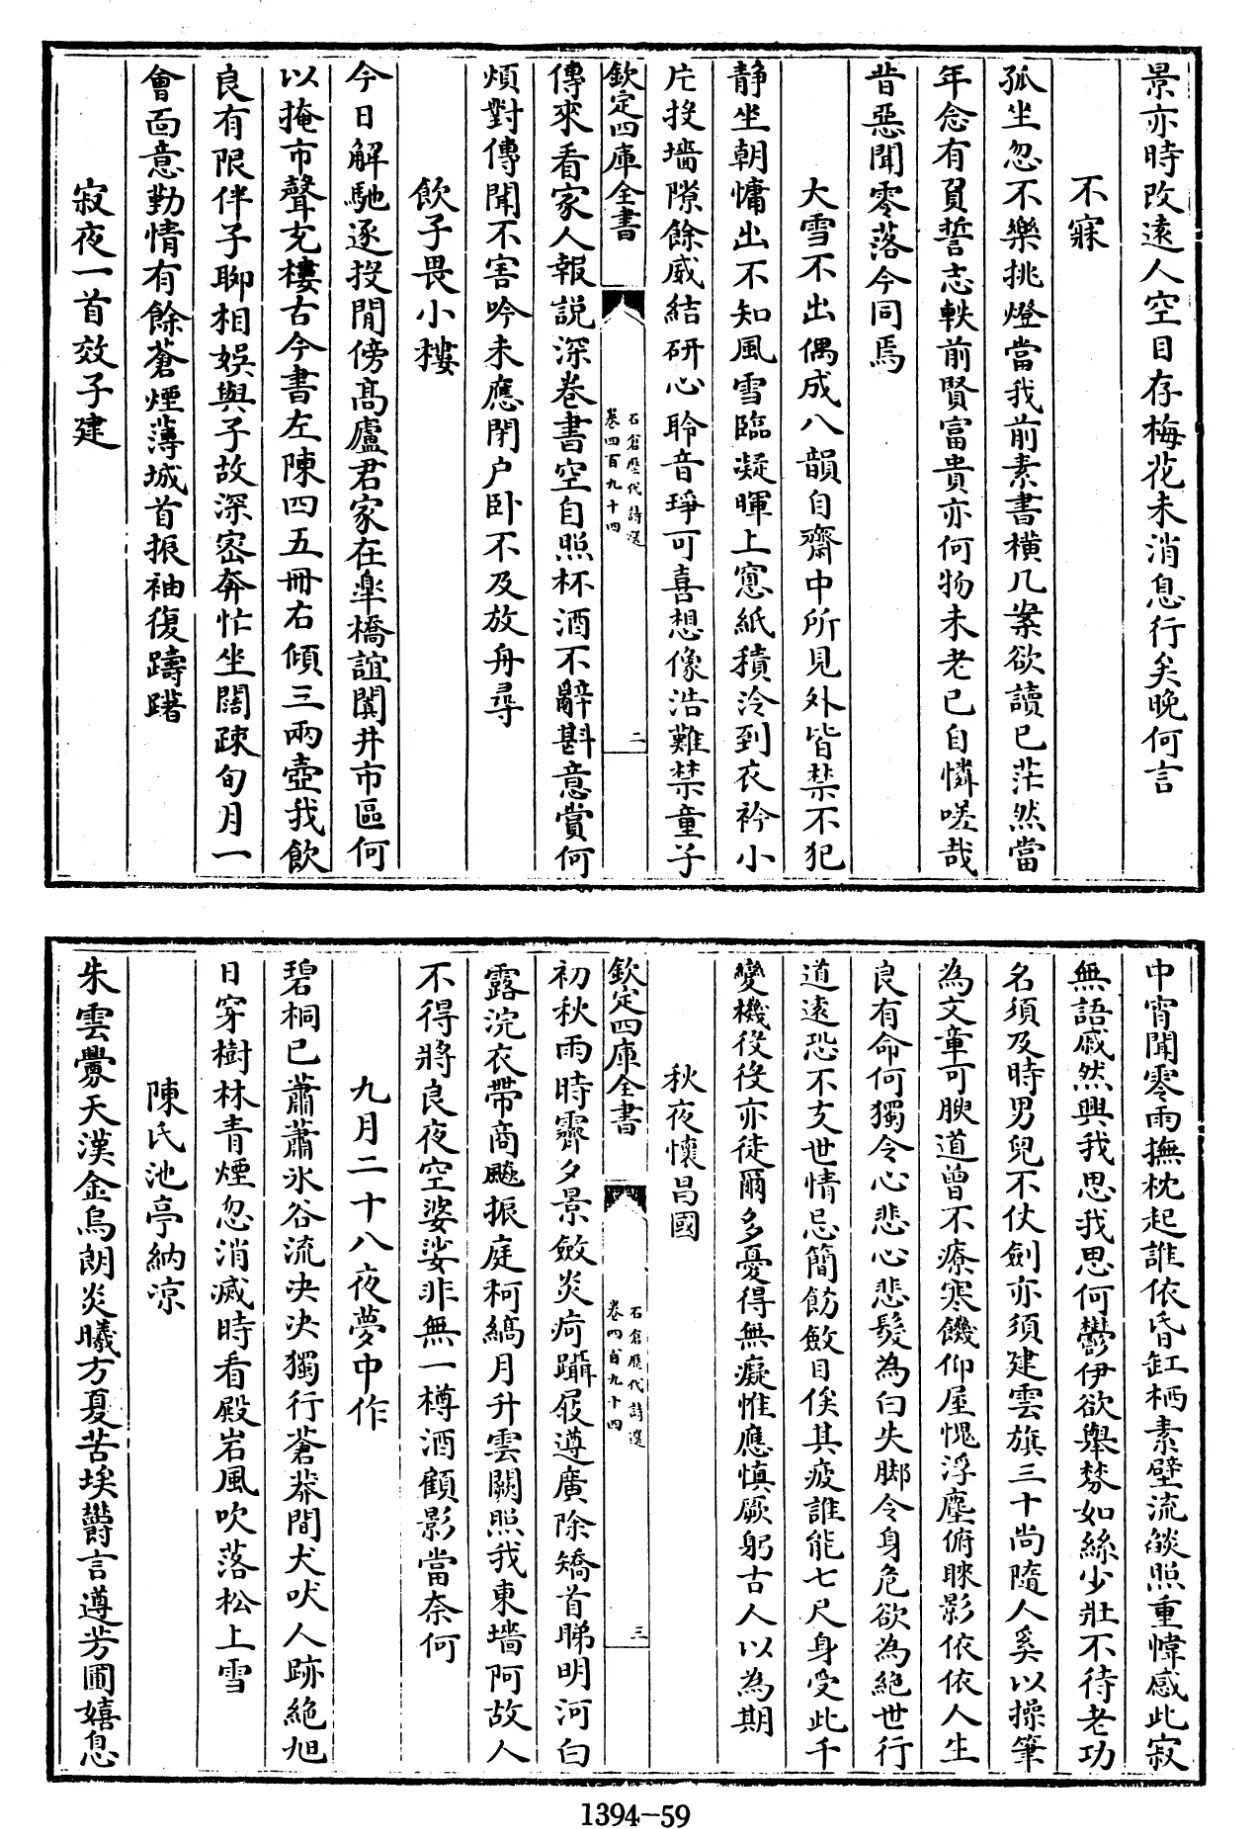 景亦時改遠人空目存梅花未消息行矣晚何言
不寐
孤坐忽不樂挑燈當我前素書横几案欲讀已茫然當
年念有負誓志軼前賢富貴亦何物未老已自憐嗟哉
昔惡聞零落今同焉
大雪不出偶成八韻自齋中所見外皆禁不犯
静坐朝慵出不知風雪臨凝暉上窓紙積冷到衣衿小
片投墻隙餘威結研心聆音琤可喜想像浩難禁童子
欽定四庫全書
石倉歷代詩選
卷四百九十四
二
傳來看家人報説深巷書空自照杯酒不辭斟意賞何
煩對傳聞不害吟未應閉户卧不及放舟尋
飲子畏小樓
今日解馳逐投閒傍髙廬君家在臯橋諠闐井市區何
以掩市聲充樓古今書左陳四五冊右傾三兩壺我飲
良有限伴子聊相娱與子故深宻奔忙坐闊疎旬月一
會面意勤情有餘蒼煙薄城首振袖復躊躇
寂夜一首效子建
中宵聞零雨撫枕起誰依昏缸栖素壁流燄照重幃感此寂
無語戚然興我思我思何鬱伊欲舉棼如絲少壯不待老功
名須及時男兒不仗劍亦須建雲旗三十尚隨人奚以操筆
為文章可腴道曾不療寒饑仰屋愧浮塵俯睐影依依人生
良有命何獨令心悲心悲髮為白失脚令身危欲為絶世行
道遠恐不支世情忌簡飭斂目俟其疲誰能七尺身受此千
變機役役亦徒爾多憂得無癡惟應慎厥躬古人以為期
秋夜懷昌國
欽定四庫全書
石倉歷代詩選
卷四百九十四
三
初秋雨時霽夕景斂炎疴躡屐遵廣除矯首睇明河白
露浣衣帶商飈振庭柯縞月升雲闕照我東墻阿故人
不得將良夜空娑娑非無一樽酒顧影當奈何
九月二十八夜夢中作
碧桐已蕭蕭氷谷流决决獨行蒼莽間犬吠人跡絶旭
日穿樹林青煙忽消滅時看殿岩風吹落松上雪
陳氏池亭納凉
朱雲爨天漢金烏朗炎曦方夏苦埃欝言遵芳圃嬉息
1394-59